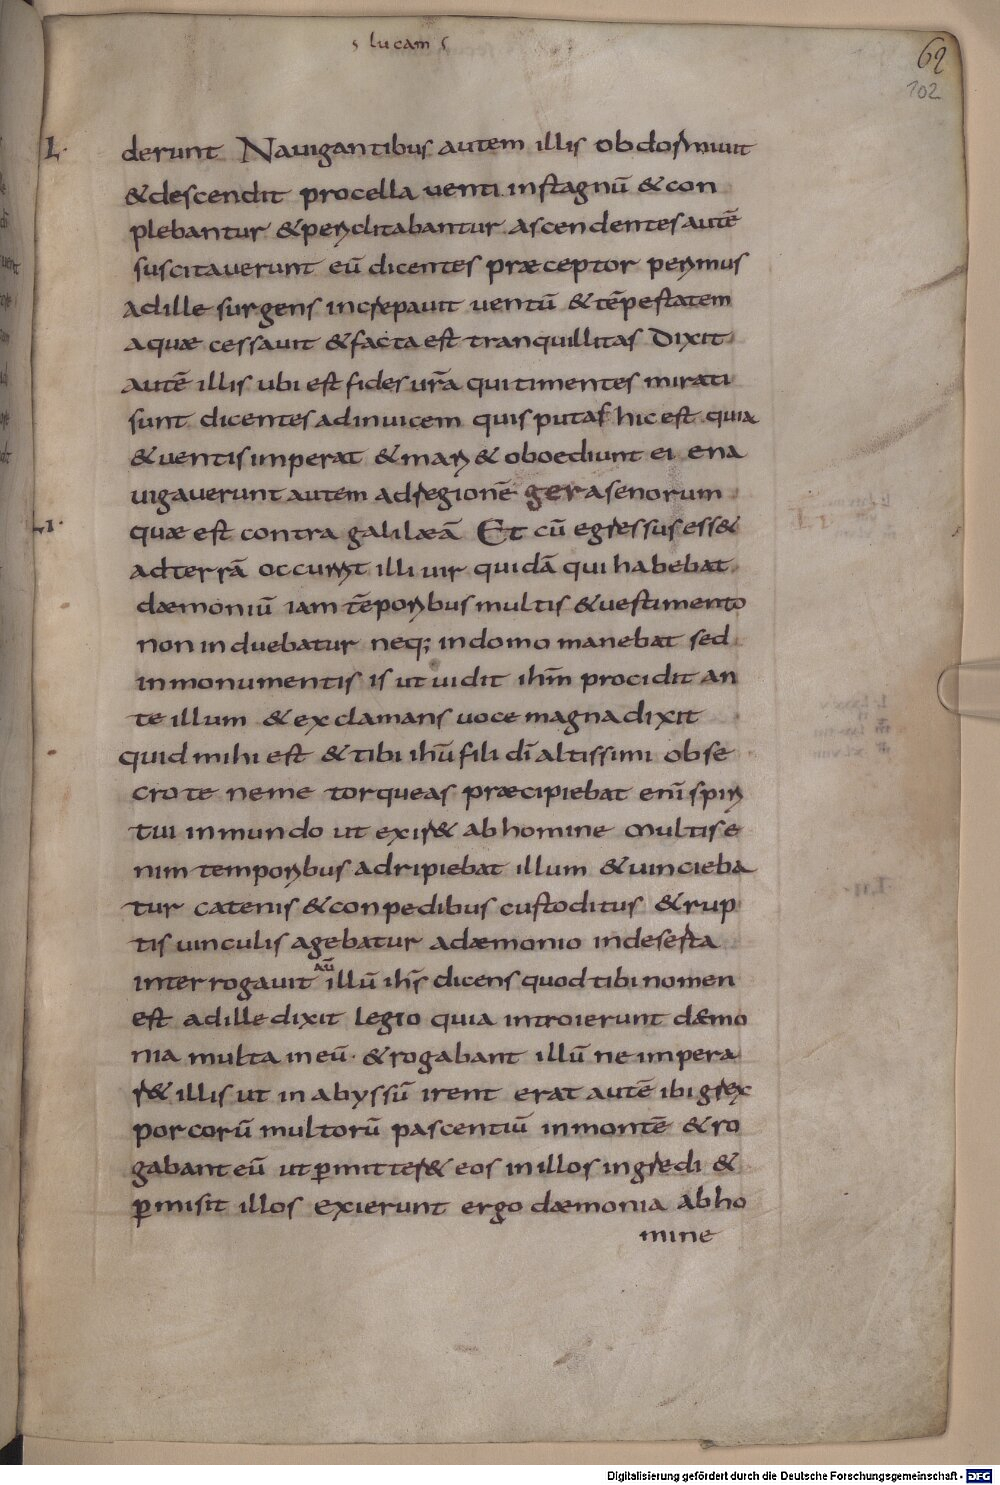 lucam
62
102
L· derunt Nauigantibus autem illis obdormiuit
& descendit procella uenti in stagnū & con
plebantur & periclitabantur ascendentes autē
suscitauerunt eū dicentes præceptor perimus
adille surgens increpauit uentū & tēpestatem
aquæ cessauit & facta est tranquillitas Dixit
autē illis ubi est fides ur̄a qui timentes mirati
sunt dicentes adinuicem quis putas hic est quia
& uentis imperat & mari & oboediunt ei ena
uigauerunt autem ad regionē gerasenorum
LI· quæ est contra galilæā Et cū egressus ess&
ad terrā occurrit illi uir quidā qui habebat
dæmoniū iam tēporibus multis & uestimento
non induebatur neq; in domo manebat sed
in monumentis is ut uidit ihm̄ procidit an
te illum & exclamans uoce magna dixit
quid mihi est & tibi ihū fili dī altissimi obse
cro te ne me torqueas præcipiebat enī spiri
tui inmundo ut exir& ab homine Multis e
nim temporibus adripiebat illum & uincieba
tur catenis & conpedibus custoditus & rup
tis uinculis agebatur a dæmonio in deserta
interrogauit aū illū ihs̄ dicens quod tibi nomen
est adille dixit legio quia introierunt dæmo
nia multa in eū· & rogabant illū ne impera
r& illis ut in abyssū irent erat autē ibi grex
porcorū multorū pascentiū in montē & ro
gabant eū ut ꝑmitter& eos in illos ingredi &
ꝑmisit illos exierunt ergo dæmonia ab ho
mine
Digitalisierung gefördert durch die Deutsche Forschungsgemeinschaft - DFG